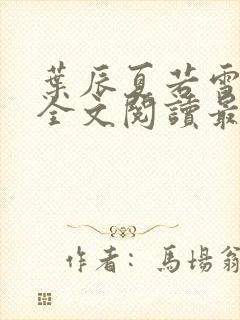 葉辰夏若雪
全文閱讀最
作者：馬場翁